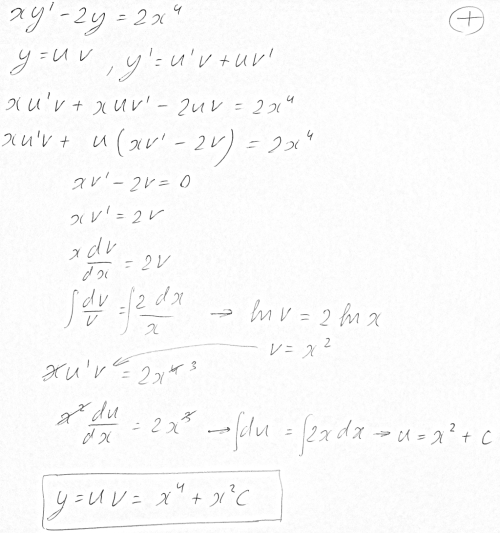 xy' - 2y = 2x⁴
(+)
y = uv, y' = u'v + uv'
xu'v + xuv' - 2uv = 2x⁴
xu'v + u(xv' - 2v) = 2x⁴
xv' - 2v = 0
xv' = 2v
x dv/dx = 2v
∫ dv/v = ∫ 2dx/x → ln v = 2 ln x
v = x²
xu'v = 2x⁴ ³
x² du/dx = 2x³ → ∫du = ∫2x dx → u = x² + c
y = uv = x⁴ + x²c